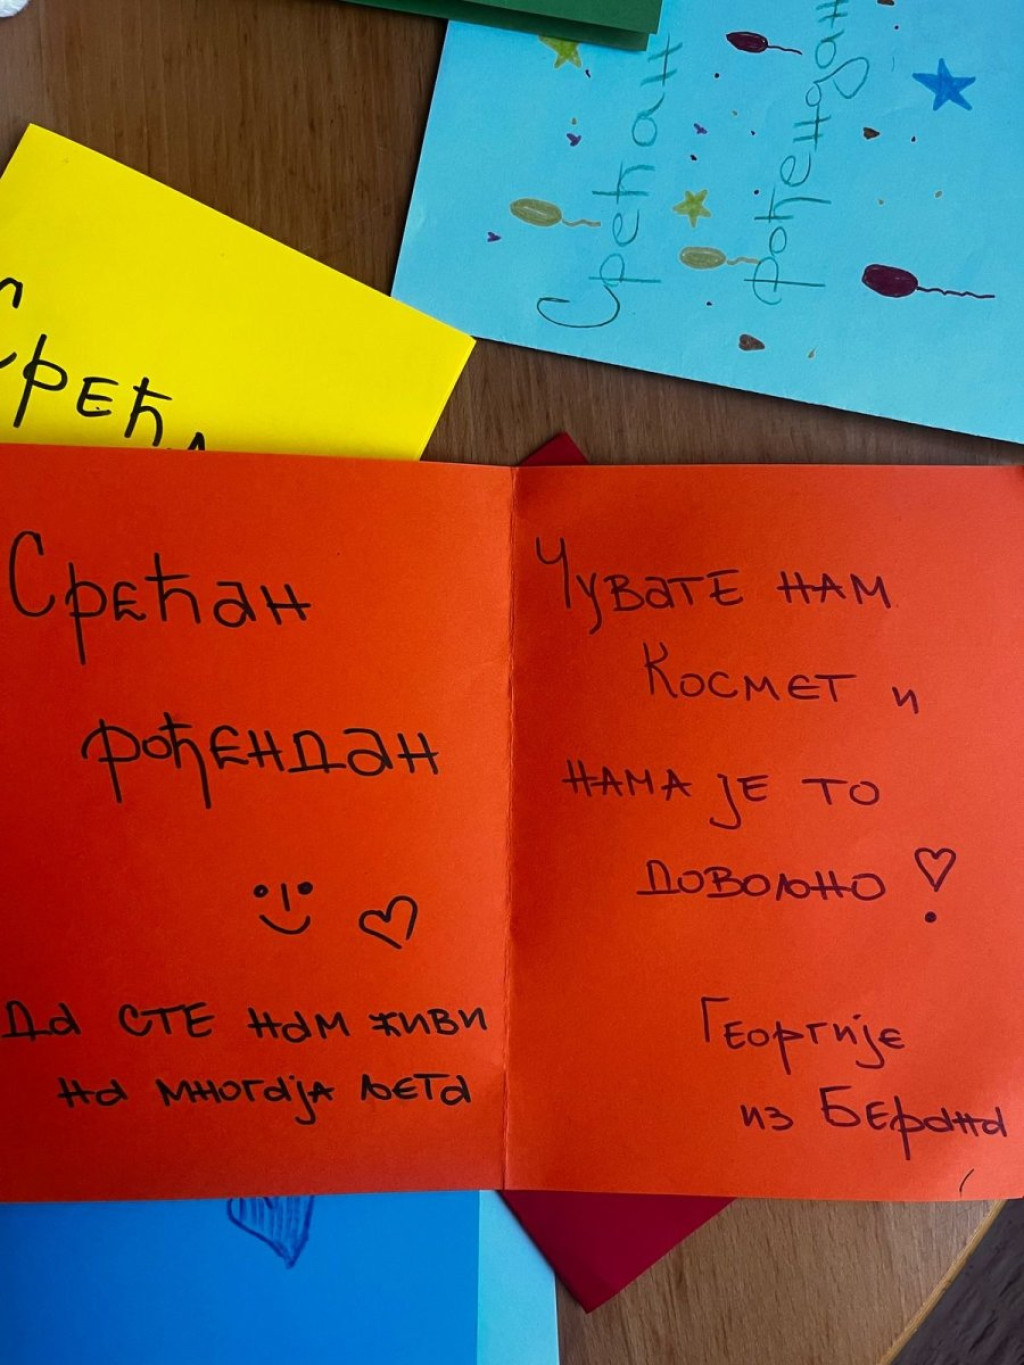 Срећан
рођендан
Срећ
Срећан
рођендан
Да сте нам живи
на многаја љета
Чувате нам
Космет и
нама је то
довољно!
Георгије
из Берана